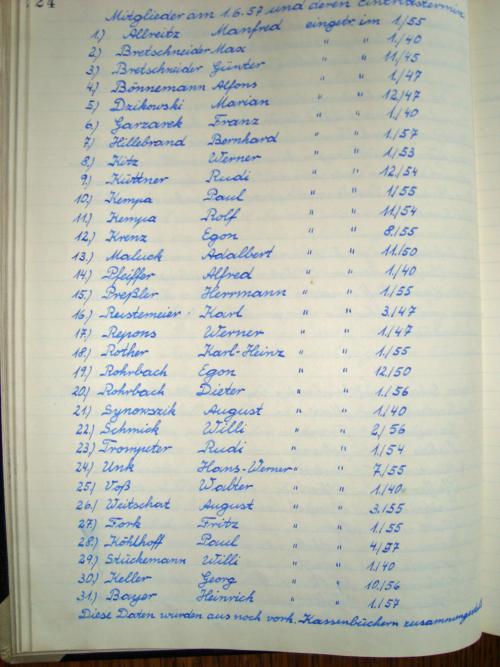 24
Mitglieder am 1.6.57 und deren Eintrittstermine
1.) Allreitz Manfred eingetr. im 1./55
2.) Bretschneider Max " " 1./40
3.) Bretschneider Günter " " 11./45
4.) Bönnemann Alfons " " 1./47
5.) Dzikowski Marian " " 12./47
6.) Garzarek Franz " " 1./40
7.) Hillebrand Bernhard " " 1./57
8.) Kitz Werner " " 1./53
9.) Küttner Rudi " " 12./54
10.) Kempa Paul " " 1./55
11.) Kempa Rolf " " 11./54
12.) Krenz Egon " " 8./55
13.) Maluck Adalbert " " 11./50
14.) Pfeiffer Alfred " " 1./40
15.) Preßler Herrmann " " 1./55
16.) Reistemeier Karl " " 3./47
17.) Repons Werner " " 1./47
18.) Rother Karl-Heinz " " 1./55
19.) Rohrbach Egon " " 12./50
20.) Rohrbach Dieter " " 1./56
21.) Synowszik August " " 1./40
22.) Schmick Willi " " 2./56
23.) Trompeter Rudi " " 1./54
24.) Unk Hans-Werner " " 7./55
25.) Voß Walter " " 1./40
26.) Weitschat August " " 3./55
27.) Fork Fritz " " 1./55
28.) Köhlhoff Paul " " 4./57
29.) Stückemann Willi " " 1./40
30.) Keller Georg " " 10./56
31.) Bayer Heinrich " " 1./57
Diese Daten wurden aus noch vorh. Kassenbüchern